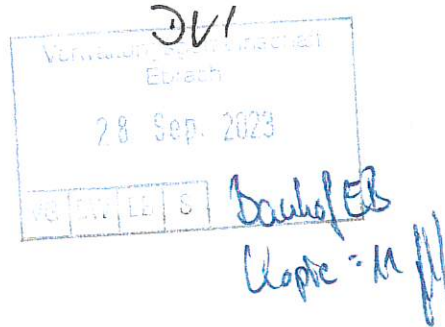 DVI
Verwaltungsgemeinschaft
Ebrach
28. Sep. 2023
VG LB S
Bauhof EB
Kopie